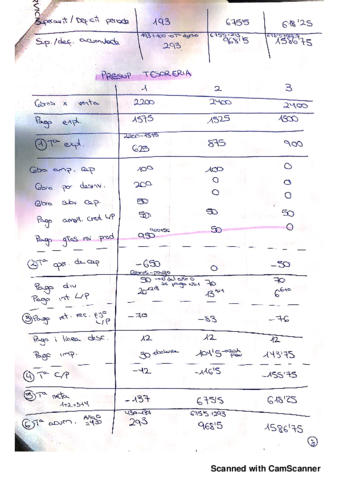 Superavit / Deficit periodo 193 675'5 618'25
Sup./def. acumulado 293 968'5 1586'75
PRESUP TESORERIA
1 2 3
Cobros x venta 2200 2400 2400
Pago expl. 1575 1525 1500
① Tª expl. 625 875 900
Cobro amp. cap 100 100 0
Cobro por desinv. 200 0 0
Cobro subv cap. 50 0
Pago amort. cred LP 50 50 50
Pago gtos inv prod 950 50 0
② Tª ope de cap -650 0 -50
Pago div 50 70 70
Pago int L/P 20 13 6
③ Pago ret. rec. L/P -70 -83 -76
Pago i linea disc. 12 12 12
Pago imp. 30 104'5 143'75
④ Tª C/P -42 -116'5 -155'75
⑤ Tª neta -137 675'5 618'25
1+2+3+4
⑥ Tª acum. 293 968'5 1586'75
Scanned with CamScanner